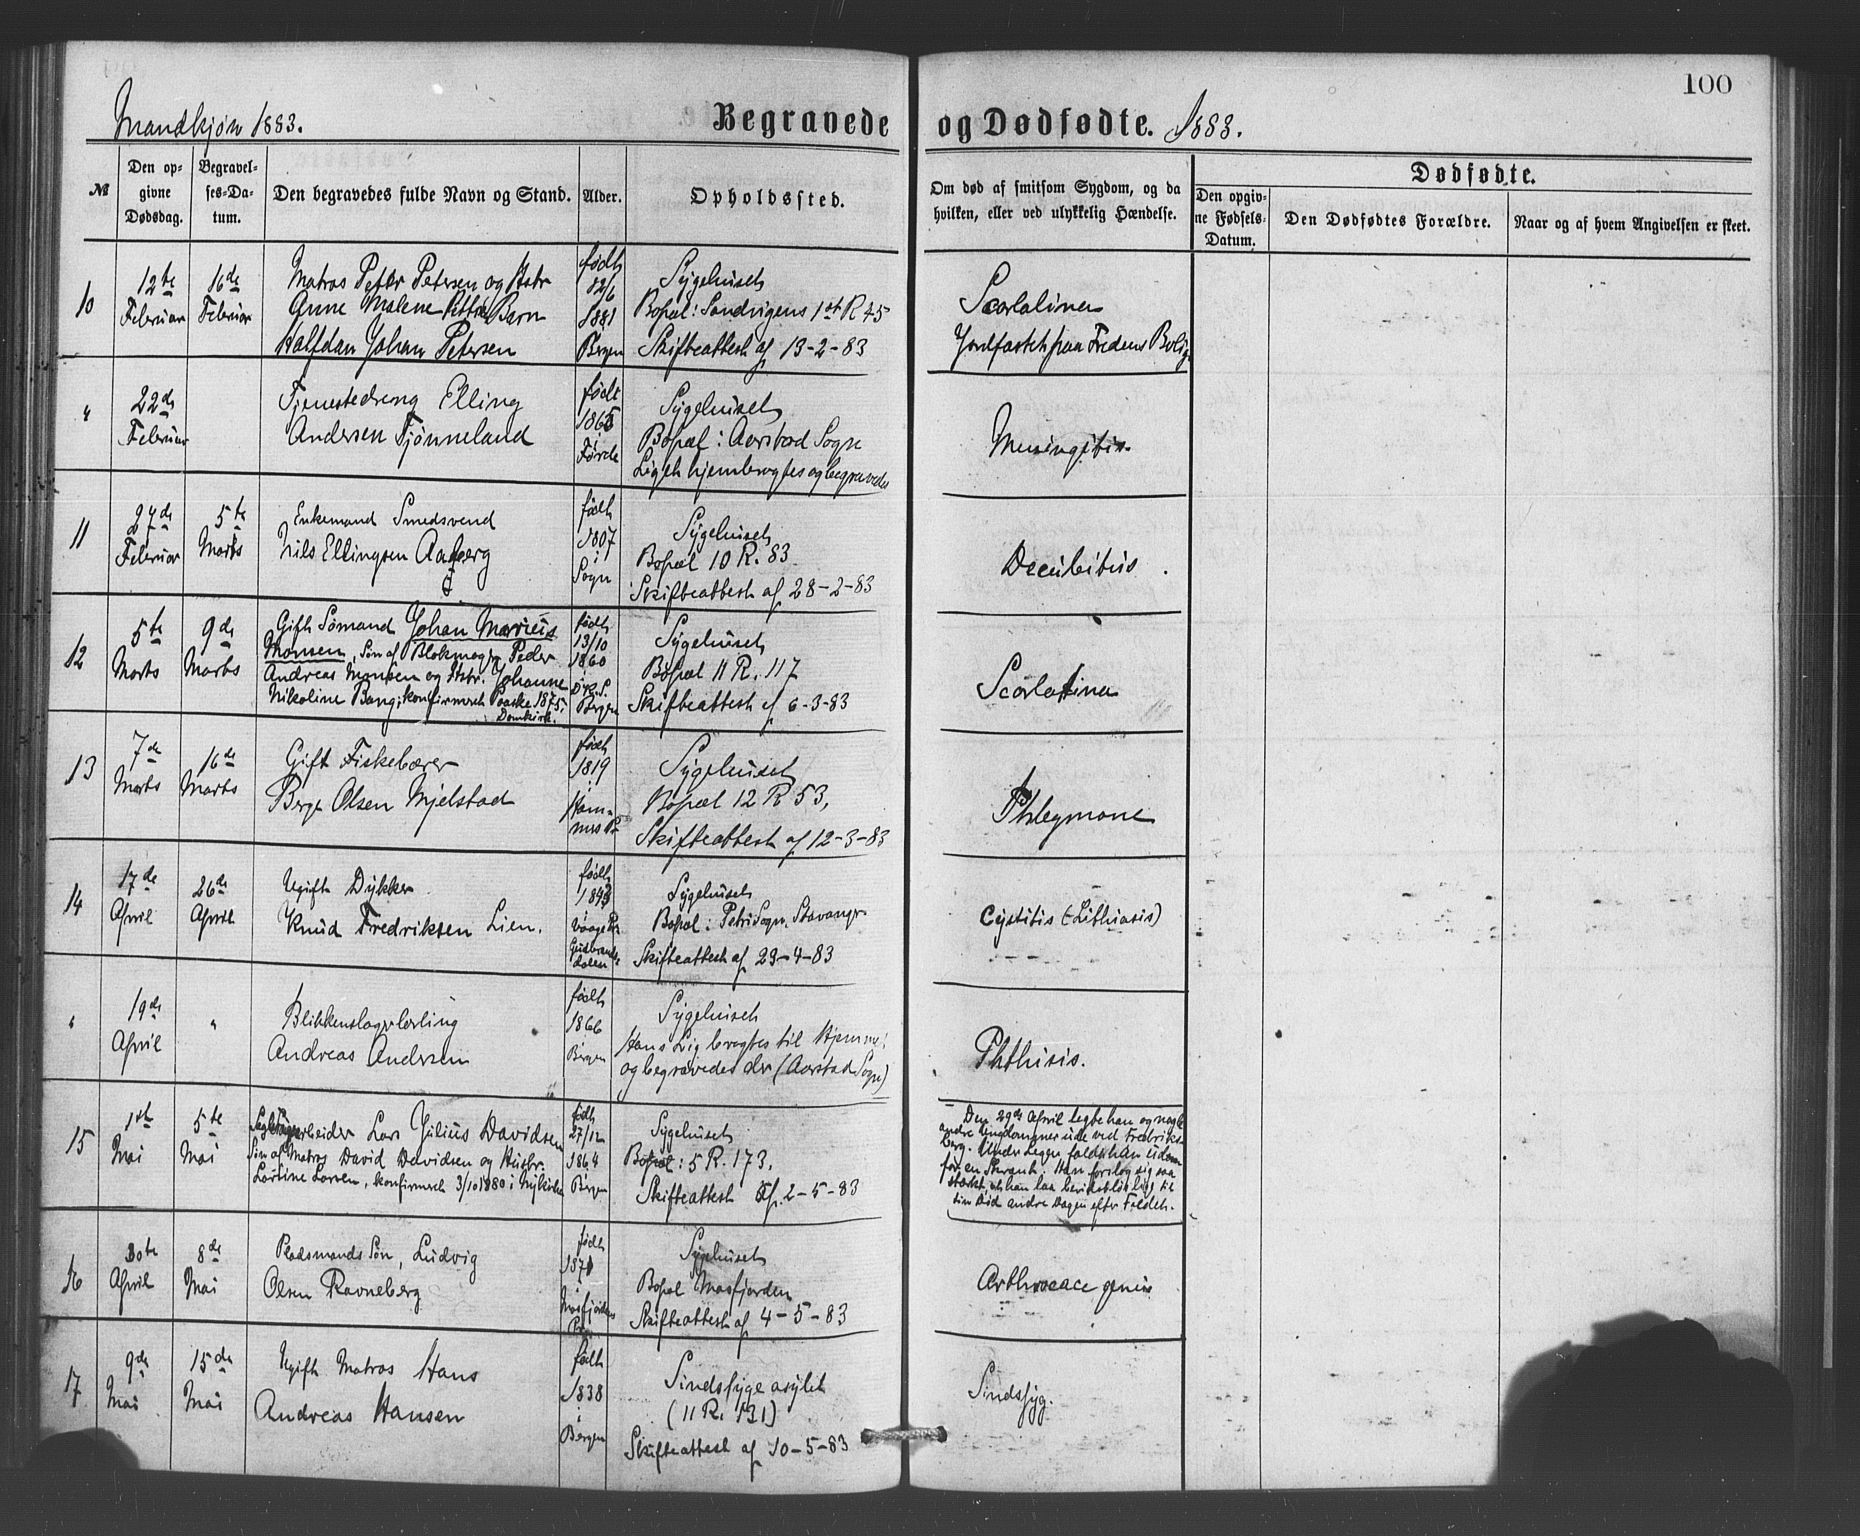 100
Mandkjøn 1883.
Begravede
og Dødfødte. 1883.
№
Den op-
givne
Dødsdag.
Begravel-
ses-Da-
tum.
Den begravedes fulde Navn og Stand.
Alder.
Opholdssted.
Om død af smitsom Sygdom, og da
hvilken, eller ved ulykkelig Hændelse.
Dødfødte.
Den opgiv-
ne Fødsels-
Datum.
Den Dødfødtes Forældre.
Naar og af hvem Angivelsen er skeet.
10
12te
Februar
16de
Februar
Matros Peter Petersen og Hstr
Anne Malene Barn
Halfdan Johan Petersen
født
12/6
1881
Bergen
Sygehuset
Bopæl: Sandvigens 1st R 45
Skifteattest af 13-2-83
Scarlatina
Jordfæstet paa Fredens Bolig
"
22de
Februar
Tjenestedreng Elling
Andersen Tjønneland
født
1865
i
Førde
Sygehuset
Bopæl: Aarstad Sogn
Liget hjembragtes og begravedes
Meningitis.
11
27de
Februar
5te
Marts
Enkemand Smedsvend
Nils Ellingsen Aaberg
født
1807
i
Sogn
Sygehuset
Bopæl 10 R. 83
Skifteattest af 28-2-83
Decubitus
12
5te
Marts
9de
Marts
Gift Sømand Johan Marius
Monsen, Søn af Blokmager Peder
Andreas Monsen og Hstr. Johanne
Nikoline Bang, konfirmeret Paaske 1875,
Domkirk.
født
13/10
1860
Bergen
Sygehuset
Bopæl 11 R. 117
Skifteattest af 6-3-83
Scarlatina
13
7de
Marts
16de
Marts
Gift Fiskebærer
Berge Olsen Mjelstad
født
1819
i
Ham-
mers P.
Sygehuset
Bopæl 12 R 53,
Skifteattest af 12-3-83
Phlegmone
14
17de
April
26de
April
Ugift Dykker
Knud Fredriksen Lien.
født
1843
Vaage P.
Gudbrands-
dalen
Sygehuset
Bopæl: Petri Sogn, Stavanger
Skifteattest af 23-4-83
Cystitis (Lithiasis)
"
19de
April
"
Blikkenslagerlærling
Andreas Andersen
født
1866
Bergen
Sygehuset
Hans Lig bragtes til Hjemmet
og begravedes der (Aarstad Sogn)
Phthisis.
15
1ste
Mai
5te
Mai
arbeider Lars Julius Davidsen
Søn af Matros David Davidsen og Hustr.
Lartine Larsen, konfirmeret 3/10 1880 i Nykirken
født
27/12
1864
Bergen
Sygehuset
Bopæl: 5 R. 173,
Skifteattest af 2-5-83
Den 29de April legte han og nogle
andre Ungdommer ude ved Fredriks-
berg. Under Legen faldt han udover
for en Skrænt. Han forslog sig saa
stærkt at han laa bevidstløs lige til
sin Død anden Dagen efter Faldet.
16
30te
April
8de
Mai
Pladsmands Søn, Ludvig
Olsen Ravneberg
født
1871
i
Masfjorden
Sygehuset
Bopæl Masfjorden
Skifteattest af 4-5-83
Arthrocace genus
17
9de
Mai
15de
Mai
Ugift Matros Hans
Andreas Hansen
født
1838
i
Bergen
Sindssygeasylet
(11 R. 131)
Skifteattest af 10-5-83
Sindssyg.